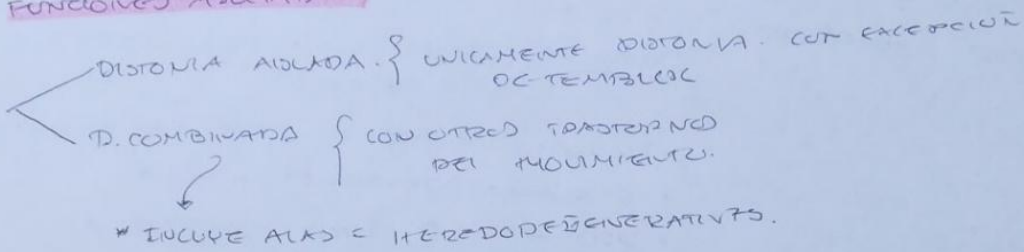 FUNCIONES
DISTONIA AISLADA. { UNICAMENTE DISTONIA. CON EXCEPCION
DE TEMBLOR
D. COMBINADA { CON OTROS TRASTORNOS
DEL MOVIMIENTO.
* INCLUYE A LAS HEREDODEGENERATIVAS.